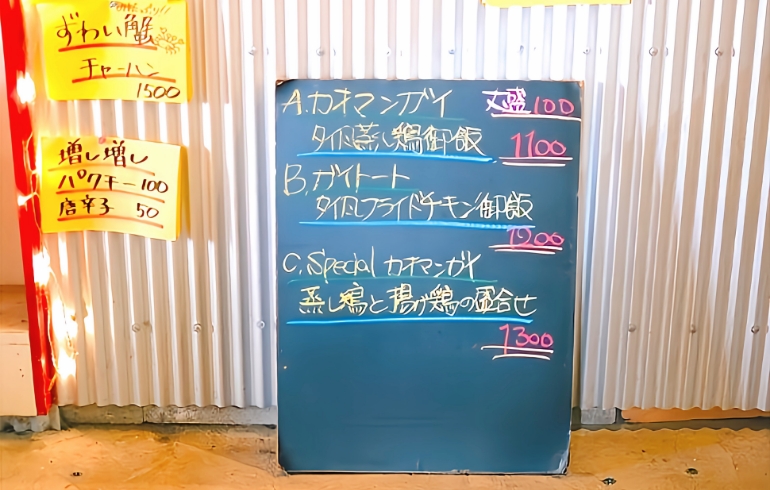 ずわい蟹
チャーハン
1500
増し増し
パクチー 100
唐辛子 50
A.カオマンガイ 大盛100
タイ風蒸し鶏御飯 1100
B.ガイトート
タイ風フライドチキン御飯
1200
C.Special カオマンガイ
蒸し鶏と揚げ鶏の盛合せ
1300